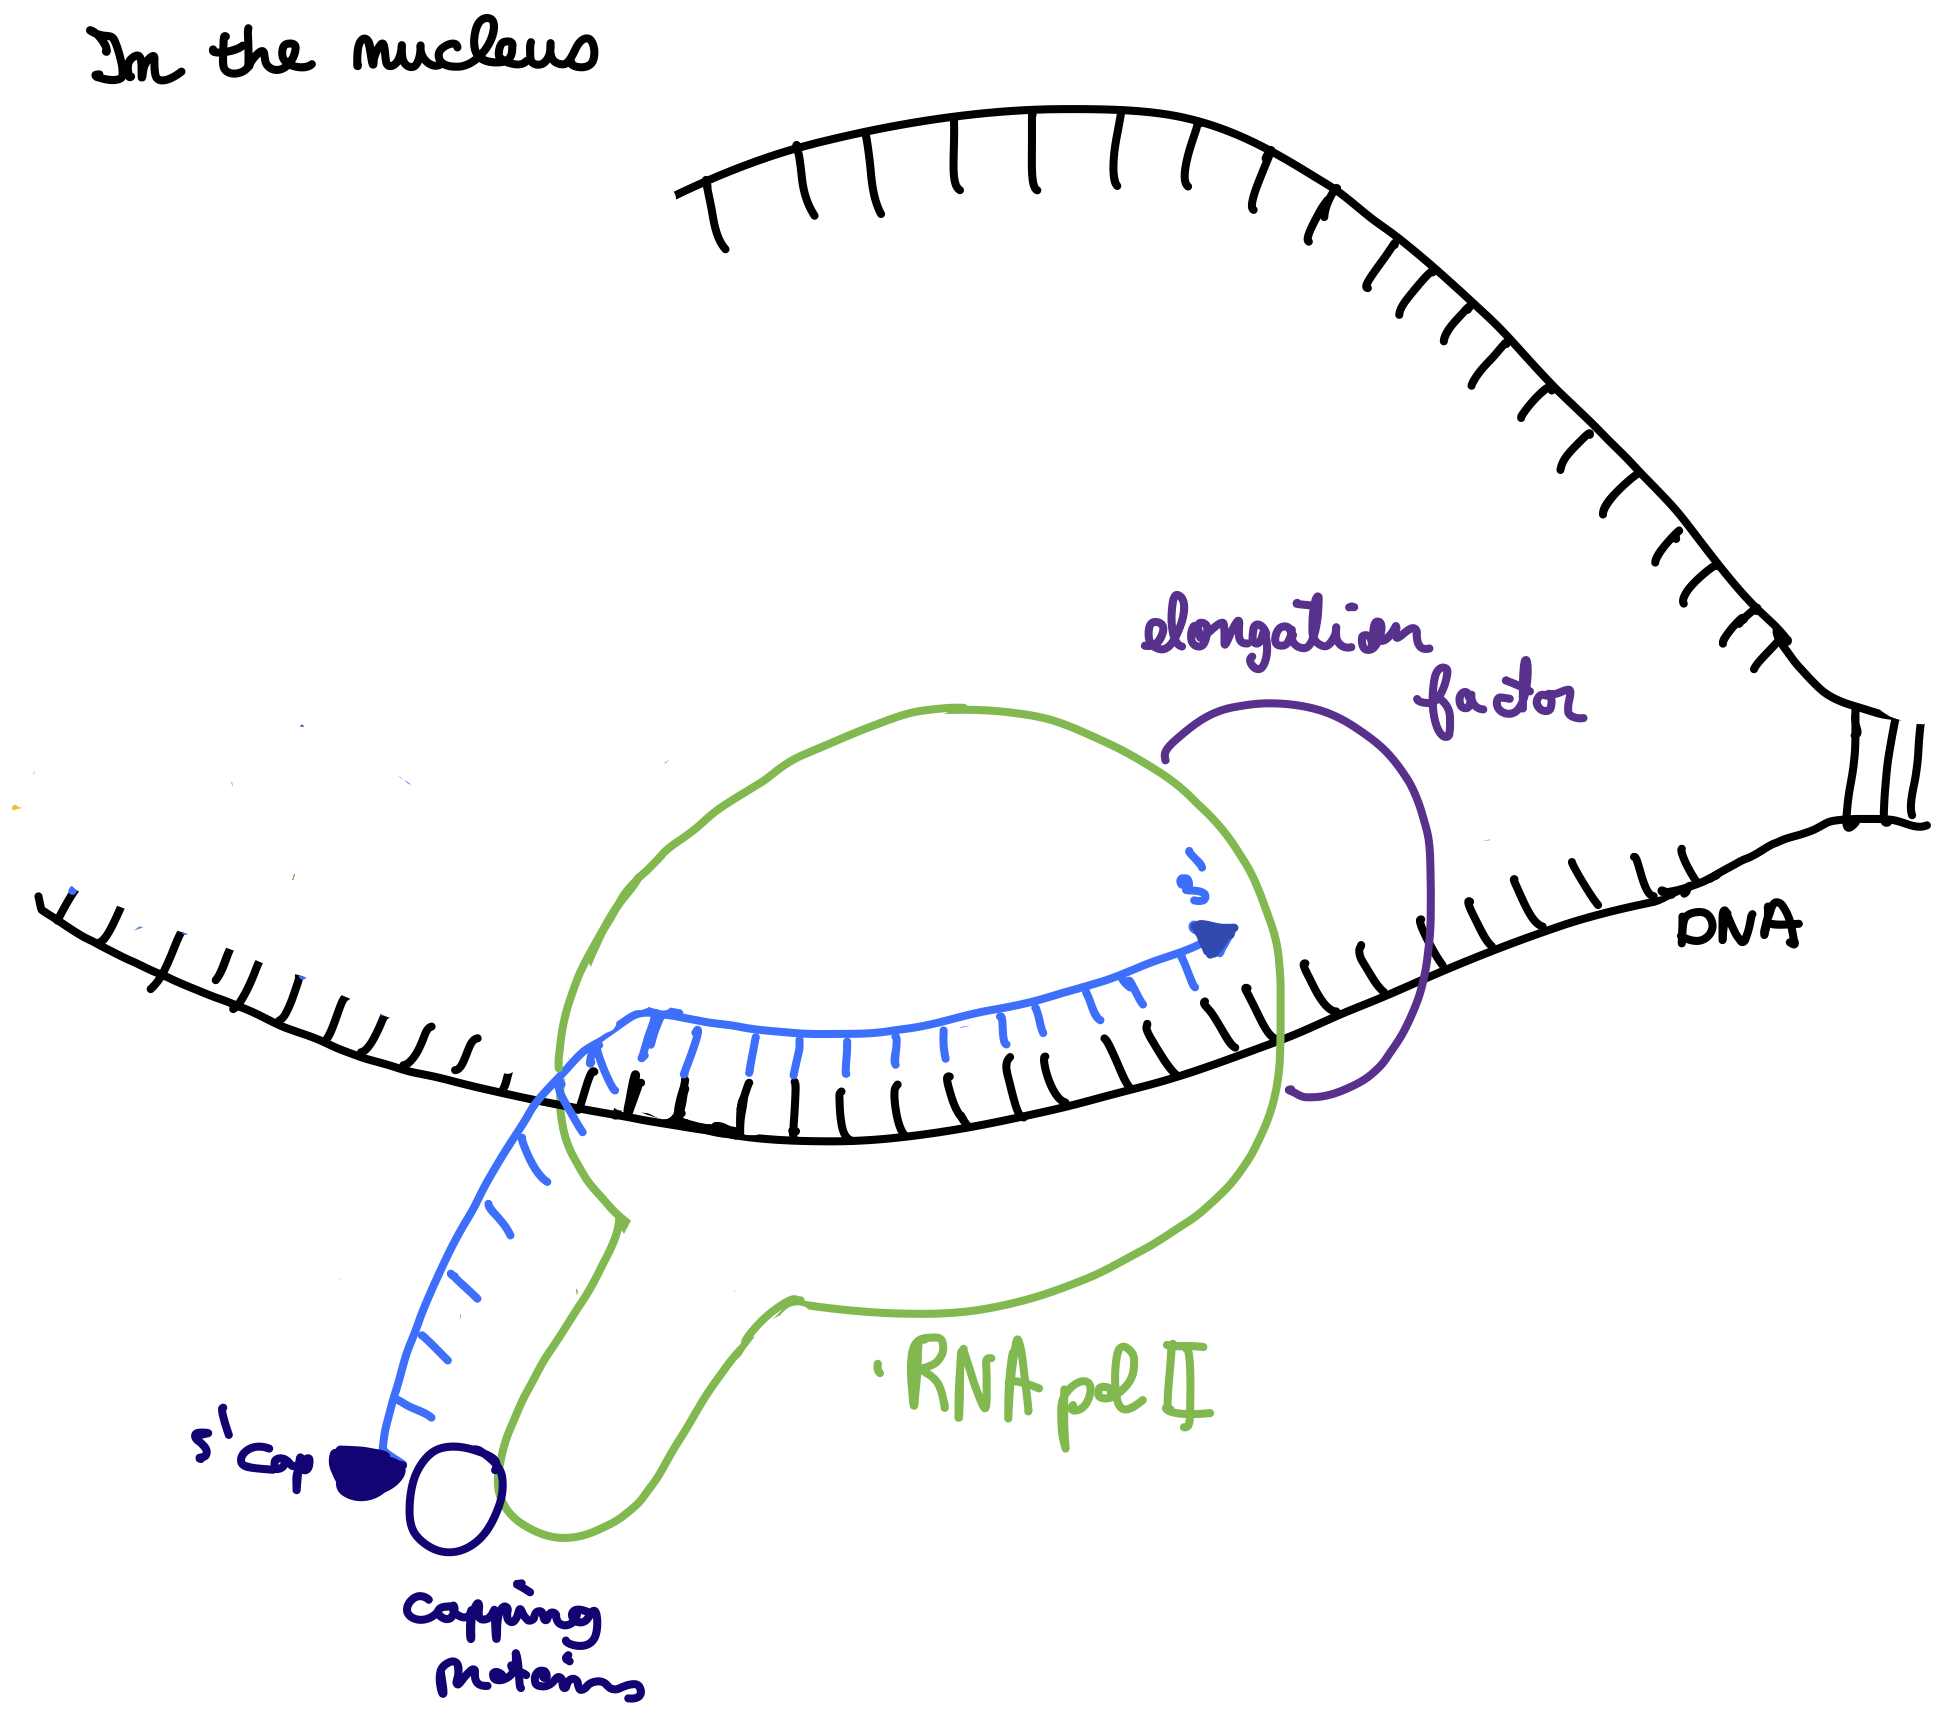 In the nucleus
elongation
factor
3'
DNA
RNA pol II
5' Cap
capping
proteins